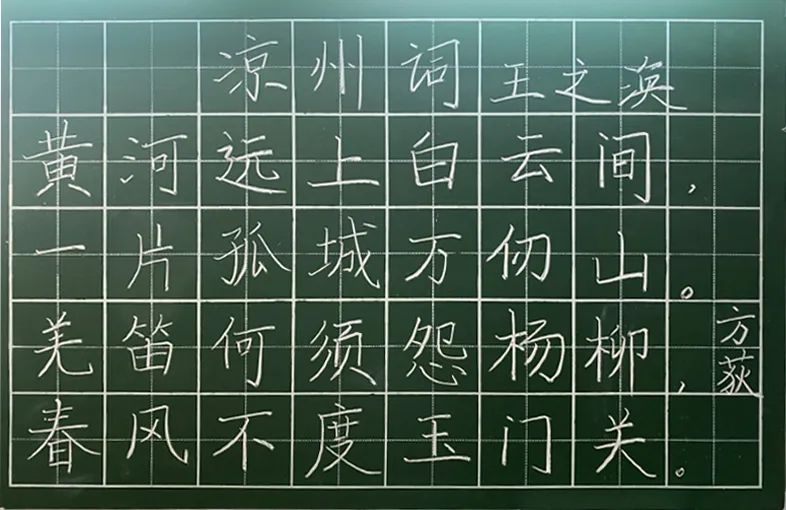 凉州词 王之涣
黄河远上白云间，
一片孤城万仞山。
羌笛何须怨杨柳，
春风不度玉门关。
方荻